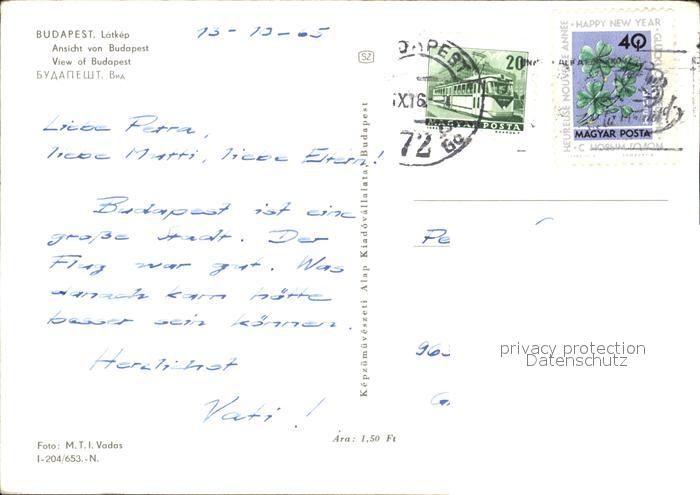 BUDAPEST. Látkép
Ansicht von Budapest
View of Budapest
БУДАПЕШТ. Вид
13-10-65
Liebe Petra,
liebe Mutti, liebe Eltern!
Budapest ist eine
große Stadt. Der
Flug war gut. Was
danach kam hätte
besser sein können.
Herzlichst
Vati!
Foto: M.T.I. Vadas
I-204/653.-N.
Ára: 1,50 Ft
Képzőművészeti Alap Kiadóvállalata, Budapest
SZ
BUDAPEST
72
20f
MAGYAR POSTA
HAPPY NEW YEAR
HEUREUSE NOUVELLE ANNÉE
40
MAGYAR POSTA
С НОВЫМ ГОДОМ
Pe
963
privacy protection
Datenschutz